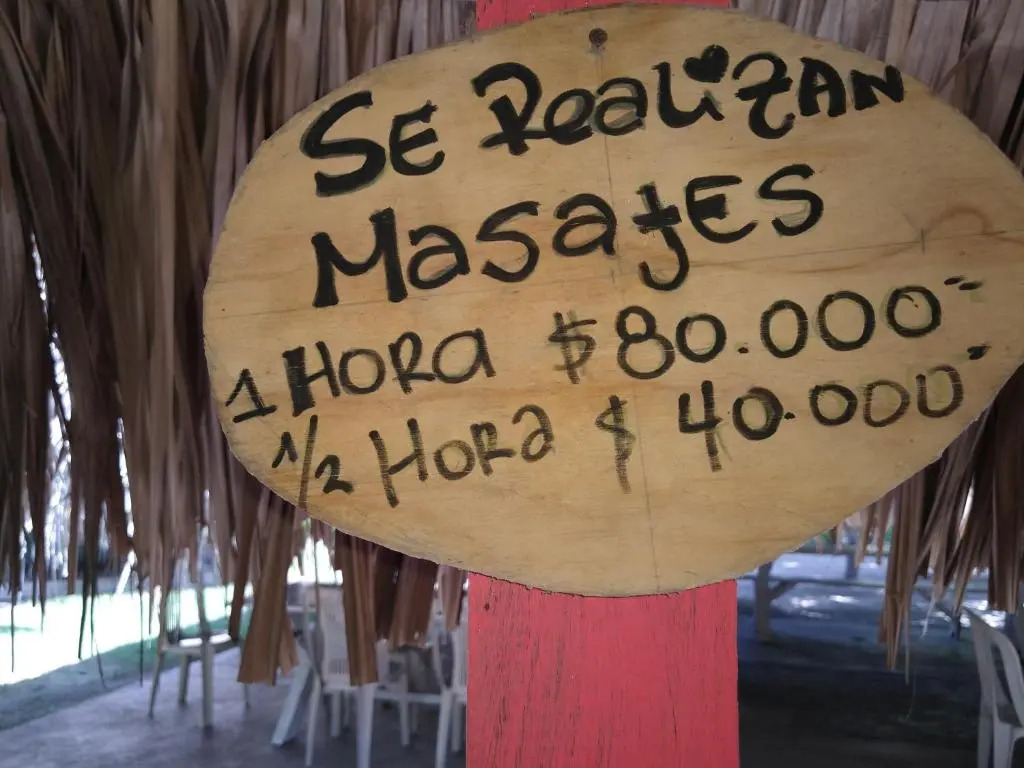 SE RealizAN
MasajES
1 HORa $80.000"
1/2 HORa $ 40.000"